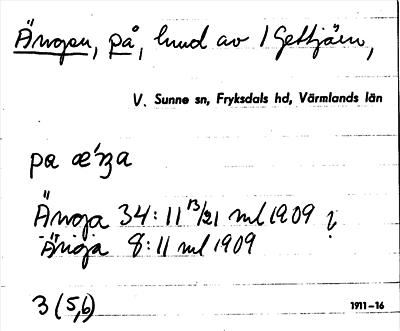 Ängen, på, hud av 1 Gettjärn,
V. Sunne sn, Fryksdals hd, Värmlands län
pa æ´ŋa
Änga 34:11 13/21 ml 1909
Änga 8:11 ml 1909
3 (5,6)
1911-16